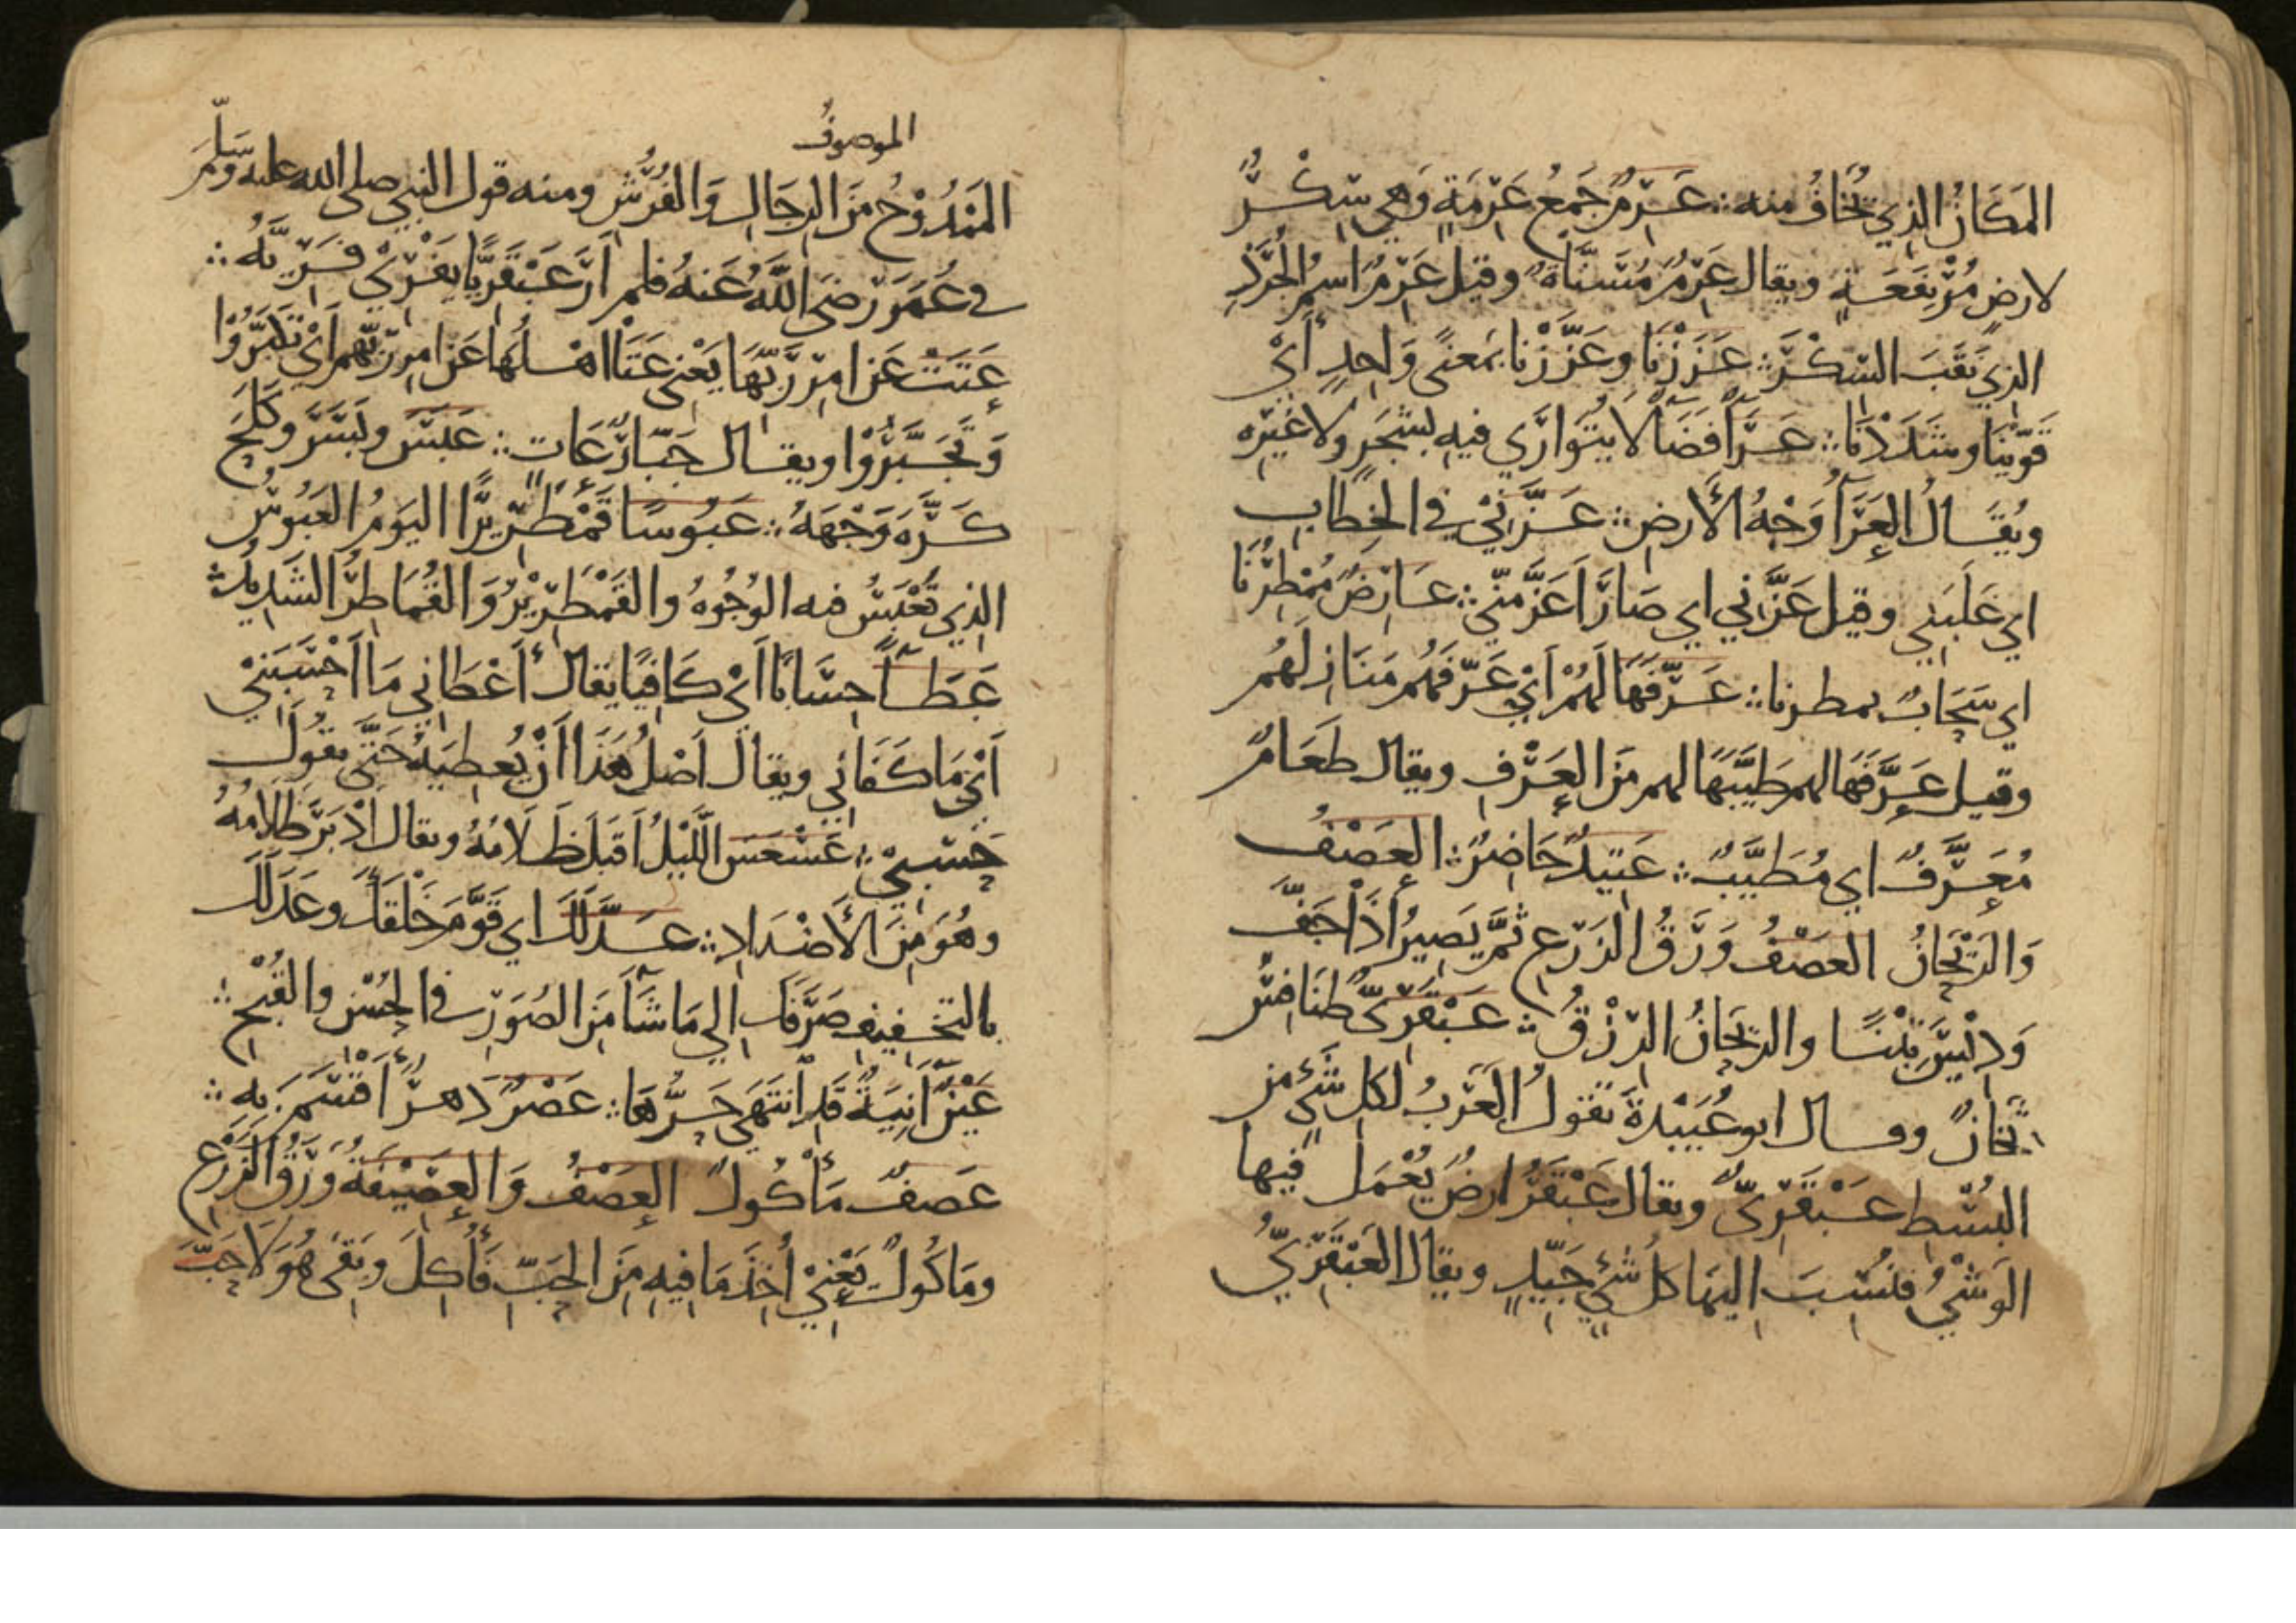 المَكَانُ الذِي يُخَافُ منه ∴ عَرِمٌ جَمْعُ عَرِمَةٍ وَهِي سِكْرٌ
لارضٍ مُرْتَفِعَةٍ ويقال عَرِمٌ مُسَنَّاةٌ وقيل عَرِمٌ اسمُ الجُرَذِ
الذِي نَقَبَ السِّكْرَ ∴ عَزَزْنَا وعَزَّزْنا بمَعنىً وَاحِدٍ أَيْ
قَوَّيْنَا وشَدَدْنَا ∴ عَرَآءٌ فَضَآءٌ لا يُتَوَارَى فيهِ بشَجَرٍ ولا غَيْرِه
ويُقَالُ العَرَآءُ وَجْهُ الأَرضِ ∴ عَزَّنِيْ في الخِطَابِ
اي غَلَبَنِي وقيل عَزَّنِي اي صَارَ أَعَزَّ مِنِّي ∴ عَارِضٌ مُمْطِرُنَا
اي سَحَابٌ يمطرنا ∴ عَرَّفَهَا لَهُمْ أَيْ عَرَّفَهُم مَنَازِلَهُم
وقيل عَرَّفَهَا لهم طَيَّبَهَا لهم مِنَ العَرْفِ ويقال طَعَامٌ
مُعَرَّفٌ اي مُطَيَّبٌ ∴ عَتِيْدٌ حَاضِرٌ ∴ العَصْفُ
وَالرَّيْحَانُ العَصْفُ وَرَقُ الزَرْعِ ثُمَّ يَصِيرُ اذَا جَفَّ
وَدِيْسَ تِبْنًا والريحَانُ الرِّزْقُ ∴ عَبْقَرِيٌّ طَنَافِسُ
ثِخَانٌ وقال ابو عُبَيْدةَ تقولُ العَرَبُ لكل شَيْءٍ من
البُسْطِ عَبْقَرِيٌّ ويقال عَبْقَرُ ارضٌ يُعْمَلُ فِيها
الوَشْيُ فنُسِبَ اليهَا كلُ شَيْءٍ جَيِّدٍ ويقال العَبْقَرِيُّ
الموصوفُ
المَمْدُوْحُ مِنَ الرجَالِ وَالفُرُشِ ومنه قول النبي صلى الله عليه وسلم
في عُمَرَ رَضيَ اللَّهُ عَنهُ فلم أَرَ عَبْقَرِيًّا يَفْرِيْ فَرِيَّهُ ∴
عَتَتْ عَنْ امرِ رَبِّهَا يَعْنِي عَتَا اهْلُهَا عَنْ امرِ رَبِّهِم أَيْ تَكَبَّرُوْا
وَتَجَبَّرُوْا ويقال جَبَّارٌ عَاتٍ ∴ عَبَسَ وبَسَرَ وكَلَحَ
كَرَّهَ وَجْهَهُ ∴ عَبُوسًا قَمْطَرِيْرًا اليَومُ العَبُوسُ
الذِي تَعْبَسُ فيه الوُجُوهُ والقَمْطَرِيْرُ وَالقُمَاطِرُ الشَدِيْدُ ∴
عَطَآءً حِسَابًا أَيْ كَافِيًا يقال أَعْطَانِي مَا أَحْسَبَنِيْ
أَيْ مَا كَفَانِي ويقال أَصْلُ هَذَا أَنْ يُعطِيَهُ حَتَّى يقُولَ
حَسْبِيْ ∴ عَسْعَسَ اللَّيْلُ أَقبَلَ ظَلَامُهُ ويقال أَدْبَرَ ظَلَامُهُ
وهُوَ مِنَ الأَضْدَادِ ∴ عَدَّلَكَ اي قَوَّمَ خَلْقَكَ وعَدَلَكَ
بالتَخفِيفِ صَرَّفَكَ الي مَا شَآءَ مِنَ الصُوَرِ في الحُسْنِ والقُبْحِ ∴
عَيْنٍ آنِيَةٍ قَدِ انتَهَى حَرُّهَا ∴ عَصْرٌ دَهرٌ أَقسَمَ بِهِ ∴
عَصفٌ مَأْكُولٌ العَصْفُ وَالعَصِيْفَةُ وَرَقُ الزَرْعِ
ومَاكُولٌ يَعْنِيْ أُخِذَ مَا فِيهِ مِنَ الحَبِّ فَأُكِلَ وبَقيَ هُوَ لَا حَبَّ